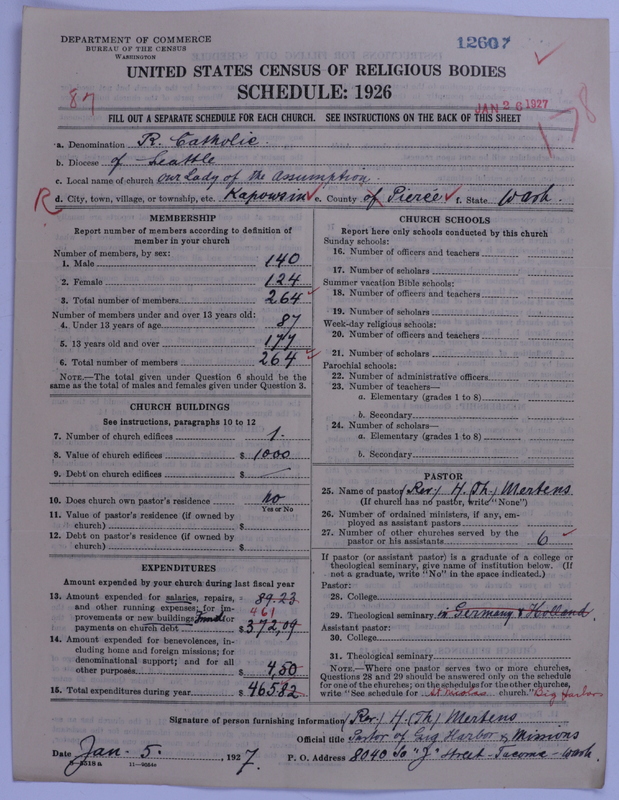 DEPARTMENT OF COMMERCE
BUREAU OF THE CENSUS
WASHINGTON
12607
UNITED STATES CENSUS OF RELIGIOUS BODIES
SCHEDULE: 1926
87
JAN 26 1927
178
FILL OUT A SEPARATE SCHEDULE FOR EACH CHURCH. SEE INSTRUCTIONS ON THE BACK OF THIS SHEET
a. Denomination R. Catholic.
b. Diocese of - Seattle
c. Local name of church our Lady of the assumption.
R d. City, town, village, or township, etc. Kapowsin e. County of Pierce f. State Wash.
MEMBERSHIP
Report number of members according to definition of
member in your church
Number of members, by sex:
1. Male 140
2. Female 124
3. Total number of members 264
Number of members under and over 13 years old:
4. Under 13 years of age 87
5. 13 years old and over 177
6. Total number of members 264
NOTE.—The total given under Question 6 should be the
same as the total of males and females given under Question 3.
CHURCH BUILDINGS
See instructions, paragraphs 10 to 12
7. Number of church edifices 1.
8. Value of church edifices $ 1000
9. Debt on church edifices $
10. Does church own pastor's residence no
Yes or No
11. Value of pastor's residence (if owned by
church) $
12. Debt on pastor's residence (if owned by
church) $
EXPENDITURES
Amount expended by your church during last fiscal year
13. Amount expended for salaries, repairs, = 89.23
and other running expenses; for im- 461
provements or new buildings; for
payments on church debt $ 372,09
14. Amount expended for benevolences, in-
cluding home and foreign missions; for
denominational support; and for all
other purposes $ 4,50
15. Total expenditures during year $ 465.82
CHURCH SCHOOLS
Report here only schools conducted by this church
Sunday schools:
16. Number of officers and teachers
17. Number of scholars
Summer vacation Bible schools:
18. Number of officers and teachers
19. Number of scholars
Week-day religious schools:
20. Number of officers and teachers
21. Number of scholars
Parochial schools:
22. Number of administrative officers
23. Number of teachers—
a. Elementary (grades 1 to 8)
b. Secondary
24. Number of scholars—
a. Elementary (grades 1 to 8)
b. Secondary
PASTOR
25. Name of pastor (Rev) H. (Th.) Mertens
(If church has no pastor, write "None")
26. Number of ordained ministers, if any, em-
ployed as assistant pastors
27. Number of other churches served by the
pastor or his assistants 6
If pastor (or assistant pastor) is a graduate of a college or
theological seminary, give name of institution below. (If
not a graduate, write "No" in the space indicated.)
Pastor:
28. College
29. Theological seminary in Germany & Holland.
Assistant pastor:
30. College
31. Theological seminary
NOTE.—Where one pastor serves two or more churches,
Questions 28 and 29 should be answered only on the schedule
for one of the churches; on the schedules for the other churches,
write "See schedule for St Nicolas church." Gig Harbor
Signature of person furnishing information (Rev) H. (Th) Mertens
Official title Pastor of Gig Harbor & Missions
Date Jan. 5. , 1927. P. O. Address 8040 So "J" Street - Tacoma - Wash.
8-5518a 11-9064